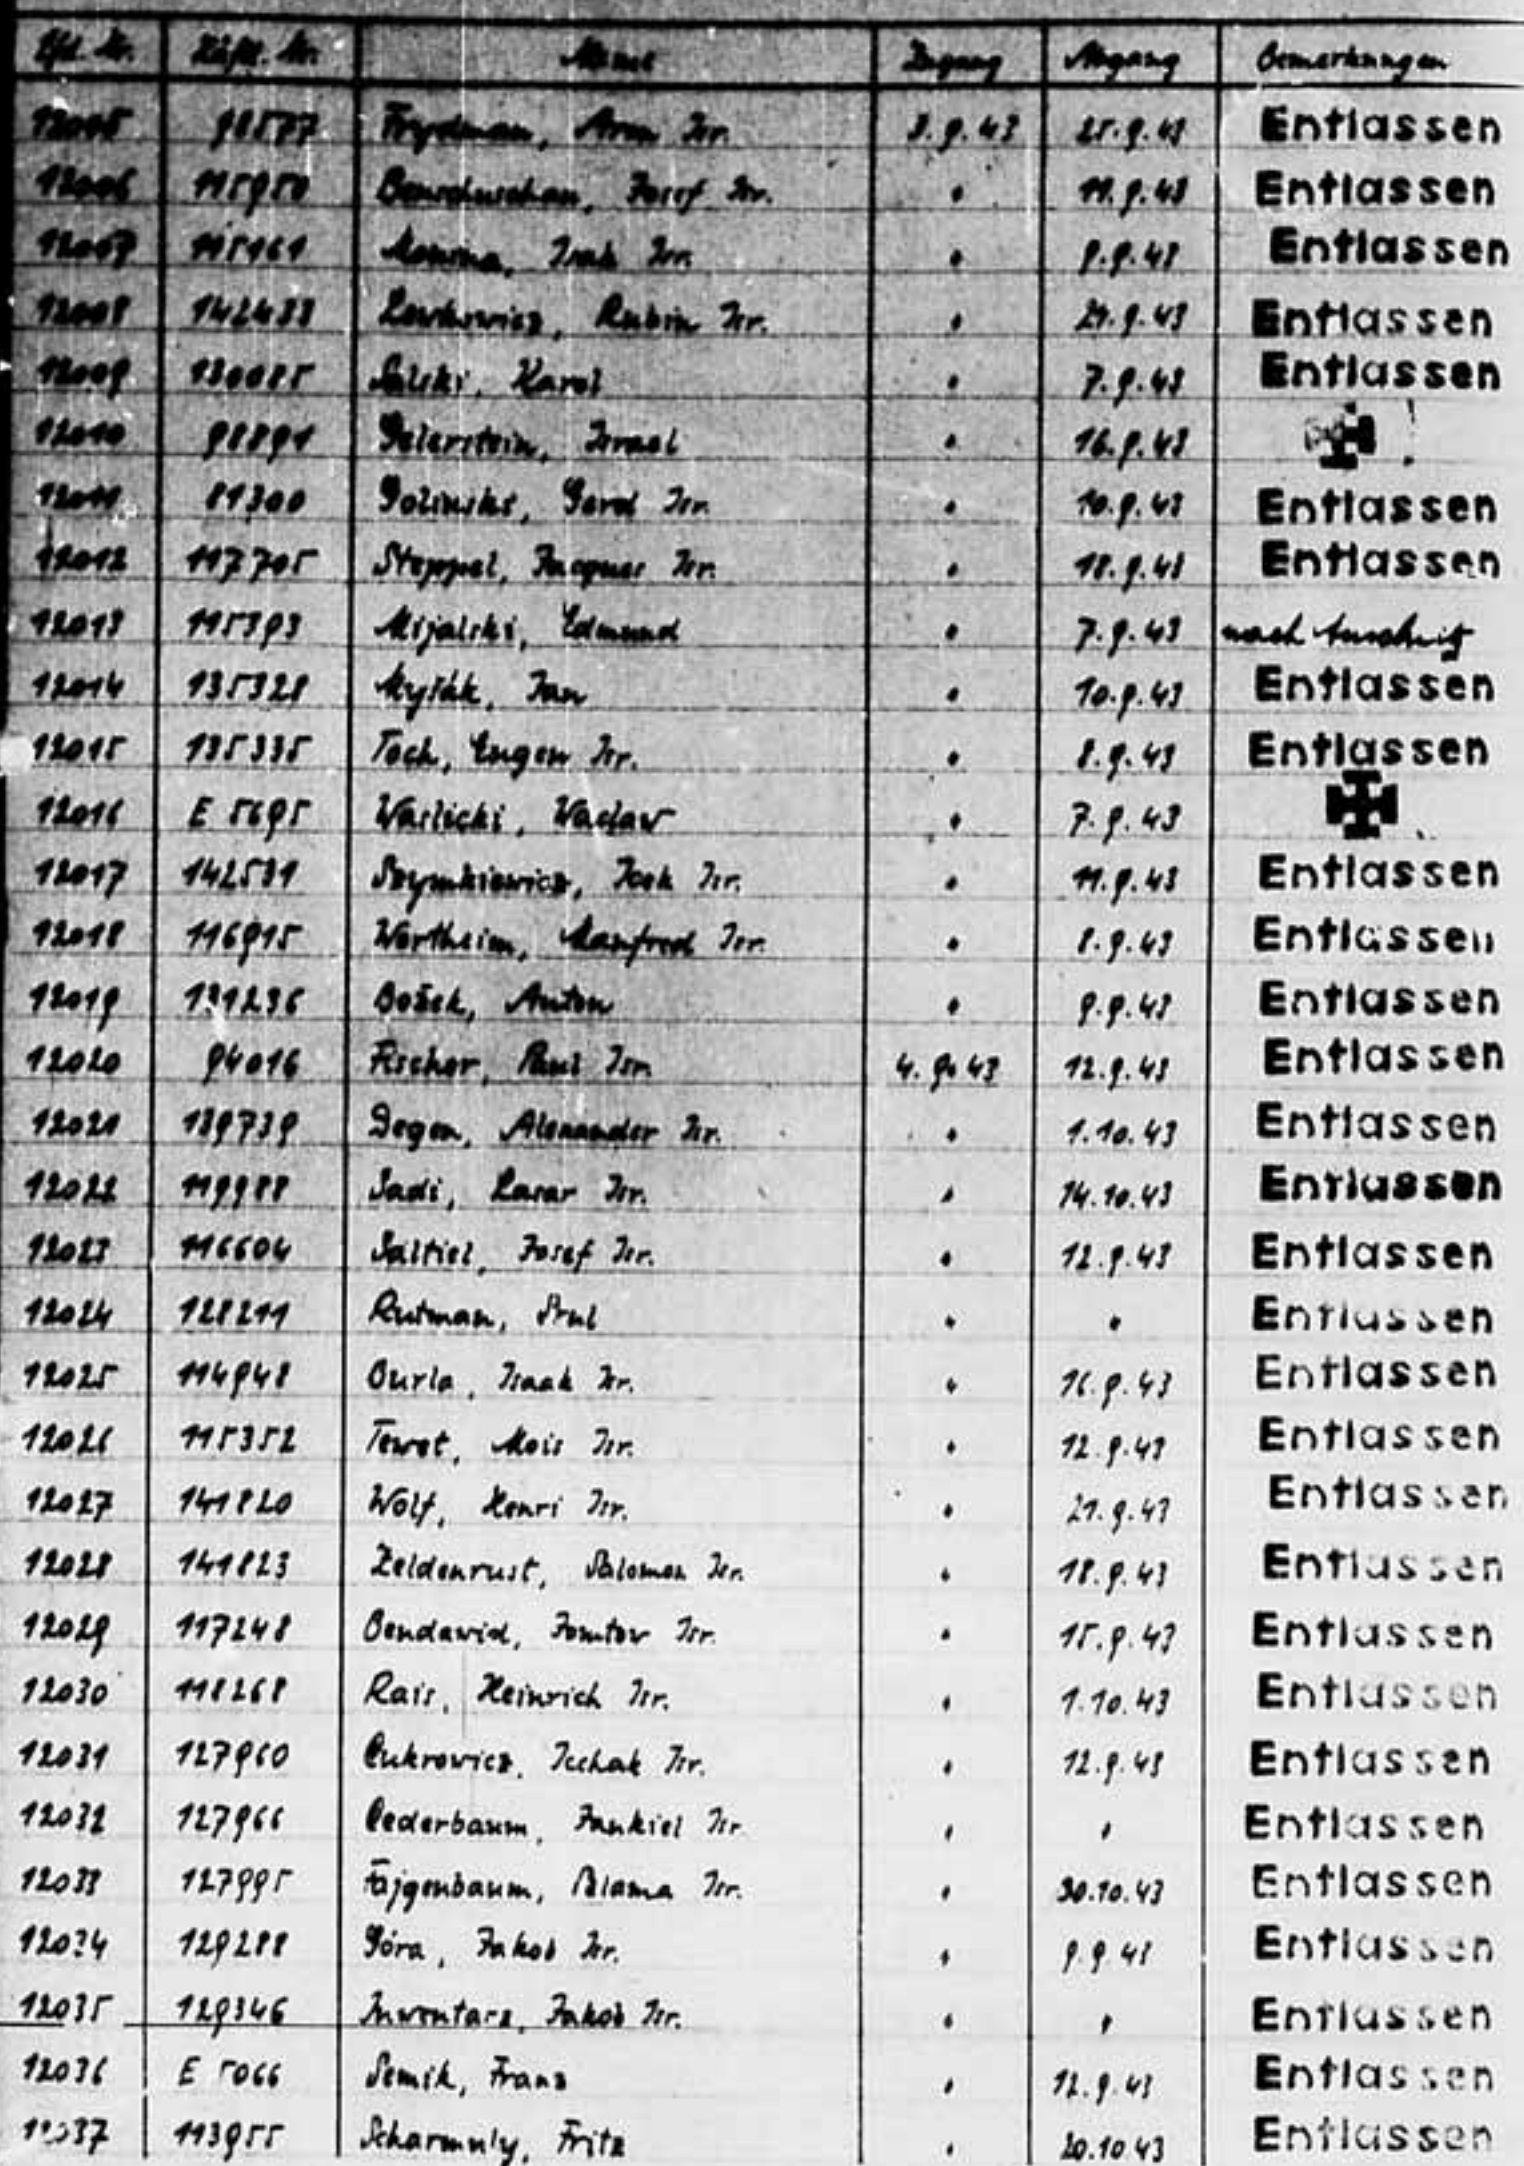 Lfd. Nr. Häftl. Nr. Name Zugang Abgang Bemerkungen
12005 98577 Frydman, Aron Isr. 3.9.43 25.9.43 Entlassen
12006 115950 Josef Isr. " 11.9.43 Entlassen
12007 Isak Isr. " 9.9.43 Entlassen
12008 142433 Lewkowicz, Rubin Isr. " 21.9.43 Entlassen
12009 130085 Salski, Karol " 7.9.43 Entlassen
12010 98891 Israel " 16.9.43
12011 81300 Golinski, Gerd Isr. " 10.9.43 Entlassen
12012 117705 Steppel, Jacques Isr. " 18.9.43 Entlassen
12013 115393 Mijalski, Edmund " 7.9.43 nach Auschwitz
12014 135328 Jan " 10.9.43 Entlassen
12015 135335 Toch, Eugen Isr. " 8.9.43 Entlassen
12016 E 5695 Warlicki, Wacław " 7.9.43
12017 142531 Szymkiewicz, Icek Isr. " 11.9.43 Entlassen
12018 116915 Wertheim, Manfred Isr. " 8.9.43 Entlassen
12019 131236 Božek, Anton " 9.9.43 Entlassen
12020 94016 Fischer, Paul Isr. 4.9.43 12.9.43 Entlassen
12021 139739 Degen, Alexander Isr. " 1.10.43 Entlassen
12022 119988 Sadi, Lasar Isr. " 14.10.43 Entlassen
12023 116604 Saltiel, Josef Isr. " 12.9.43 Entlassen
12024 128211 Rutman, Srul " " Entlassen
12025 114948 Burla, Isaak Isr. " 16.9.43 Entlassen
12026 115352 Tewet, Mois Isr. " 12.9.43 Entlassen
12027 141820 Wolf, Henri Isr. " 21.9.43 Entlassen
12028 141823 Zeldenrust, Salomon Isr. " 18.9.43 Entlassen
12029 117248 Bendawid, Jomtow Isr. " 15.9.43 Entlassen
12030 118268 Rais, Heinrich Isr. " 1.10.43 Entlassen
12031 127960 Cukrowicz, Icchak Isr. " 12.9.43 Entlassen
12032 127966 Cederbaum, Jankiel Isr. " " Entlassen
12033 127995 Fajgenbaum, Szlama Isr. " 30.10.43 Entlassen
12034 129288 Góra, Jakob Isr. " 9.9.43 Entlassen
12035 129346 Inwentarz, Jakob Isr. " " Entlassen
12036 E 5066 Semik, Franz " 12.9.43 Entlassen
12037 113955 Fritz " 20.10.43 Entlassen